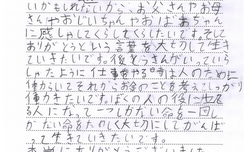 いかもしれないから、お父さんやお母
さんやおじいちゃんやおばあちゃん
に感しゃしてくらしてくらしていたいです。そして
ありがとうという言葉を大切にして生き
ていきたいです。後とうさんがいっていら
しゃたように仕事やる時は人のために
働からいてそれからお金のことを考えしっかり
働きたいです。ぼくの人の後に
る人になって一つしかない命を一回し
かない命をたくん大切にしてがんば
って生きていきたいです。
本当にありがとうございました